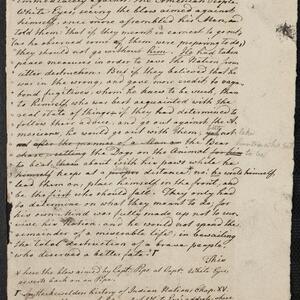 immediately against the American people.
White Eyes seeing the blow aimed against
himself, once more assembled his Men, and
told them: that if they meant in earnest to go out,
(as he observed some of them were preparing to do,)
they should not go without him. He had taken
peace measures in order to save the Nation from
utter destruction. But if they believed that he
was in the wrong, and gave more credit to vaga-
bond fugitives, whom he knew to be such, than
to himself who was best acquainted with the
real state of things; if they had determined to
follow their advice, and go out against the A-
mericans, he would go out with them; but not
not after the manner of a Man on the Bear
chase setting the Dogs on the animal
to be beat about with his paws while he
himself keeps at a proper distance; no; he would himself
lead them on, place himself in the front, and
be the first who should fall. They only had
to determine on what they meant to do; for
his own Mind was fully made up not to sur-
vive his Nation: and he would not spend the re-
mainder of a miserable life, in bewailing
the total destruction of a brave people,
who deserved a better fate.
This
* here the blow aimed by Capt: Pipe at Capt: White Eyes,
Heckewelders history of Indian Nations Chap. XV.